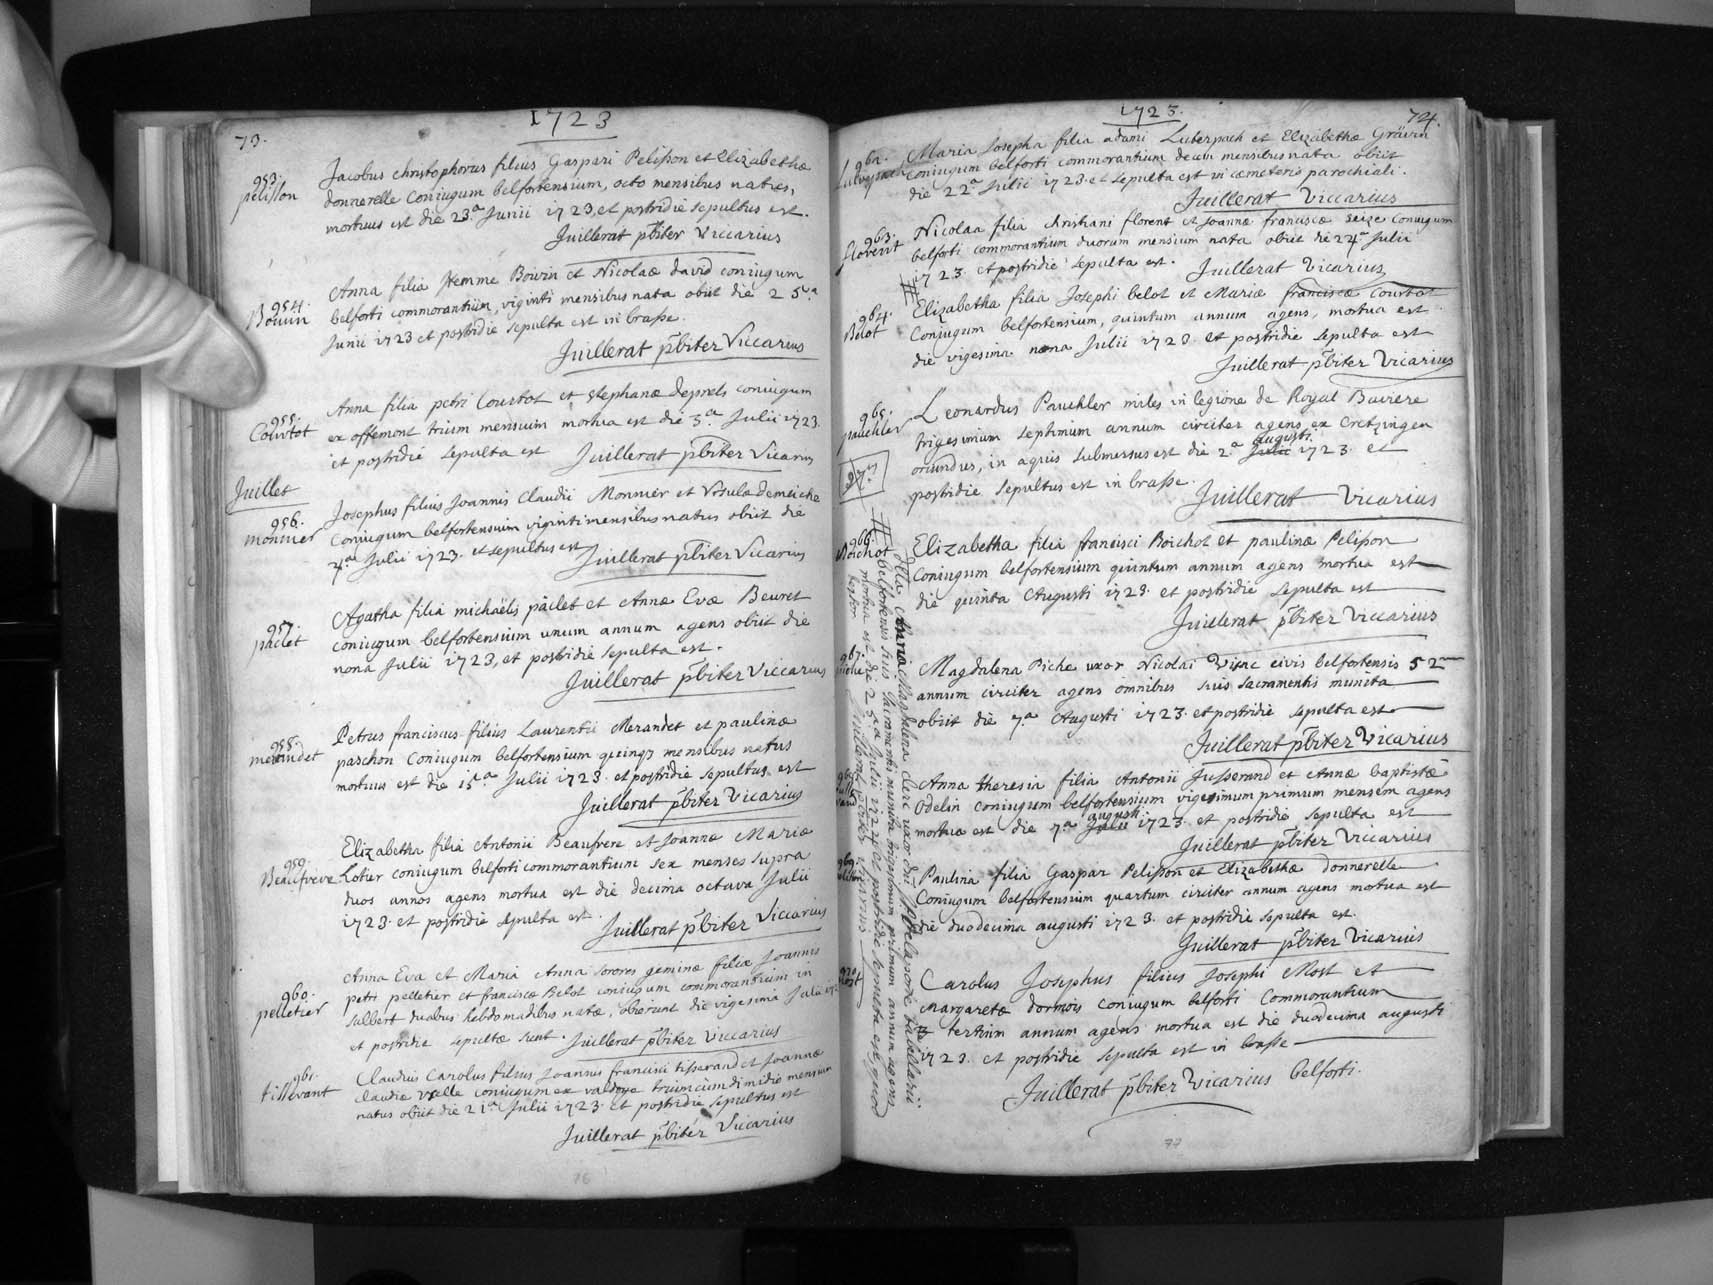 73.
1723
953.
pelisson
Jacobus christophorus filius Gaspari Pelisson et Elizabethæ
donnerelle Coniugum belfortensium, octo mensibus natus,
mortuus est die 23.a Junii 1723, et postridie sepultus est.
Juillerat pbiter Viccarius
954.
Anna filia Hemme Bouin et Nicolaæ david coniugum
belforti commorantium, viginti mensibus nata obiit die 25.a
Junii 1723 et postridie sepulta est in brasse.
Juillerat pbiter Viccarius
955.
Courtot
Anna filia petri Courtot et stephanæ coniugum
ex offemont trium mensium mortua est die 3.a Julii 1723.
et postridie sepulta est Juillerat pbiter Vicarius
Juillet
956.
monnier
Josephus filius Joannis Claudii Monnier et Vrsulæ demeiche
Coniugum belfortensium viginti mensibus natus obiit die
4.a Julii 1723. et sepultus est Juillerat pbiter Vicarius
957.
paclet
Agatha filia michaëlis paclet et Annæ Evæ Beuret
coniugum belfortensium unum annum agens obiit die
nona Julii 1723, et postridie sepulta est.
Juillerat pbiter Viccarius
958.
Petrus franciscus filius Laurentii Merandet et paulinæ
paschon Coniugum belfortensium mensibus natus
mortuus est die 15.a Julii 1723. et postridie sepultus est
Juillerat pbiter Vicarius
959.
Beaufrere
Elizabetha filia Antonii Beaufrere et Joannæ Mariæ
Lotier coniugum belforti commorantium sex menses supra
duos annos agens mortua est die decima octava Julii
1723. et postridie sepulta est. Juillerat pbiter Viccarius
960.
pelletier
Anna Eva et Maria Anna sorores geminæ filiæ Joannis
petri pelletier et franciscæ Belot coniugum commorantium in
salbert duabus hebdomadibus natæ, obierunt die vigesima Julii
et postridie sepultæ sunt. Juillerat pbiter Viccarius
961.
Claudius Carolus filius Joannis francisci tisserand et Joannæ
Claudiæ coniugum ex valdoye trium cum dimidio mensium
natus obiit die 21.a Julii 1723. et postridie sepultus est
Juillerat pbiter Viccarius
76
1723.
74.
962.
Maria Josepha filia adami Luterpach et Elizabethæ Grävin
coniugum belforti commorantium decem mensibus nata obiit
die 22.a Julii 1723. et sepulta est in cæmeterio parochiali.
Juillerat Viccarius
963.
florent
Nicolaa filia christiani florent et Joannæ franciscæ seize Coniugum
belforti commorantium duorum mensium nata obiit die 24.a Julii
1723. et postridie sepulta est. Juillerat Vicarius
964.
Belot
Elizabetha filia Josephi belot et Mariæ franciscæ Courtot
Coniugum belfortensium, quintum annum agens, mortua est
die vigesima nona Julii 1723. et postridie sepulta est
Juillerat pbiter Vicarius
965.
pauckler
Leonardus Pauckler miles in legione de Royal Baviere
trigesimum septimum annum circiter agens ex Cretzingen
oriundus, in aquis submersus est die 2.a Julii augusti 1723. et
postridie sepultus est in brasse.
Juillerat Vicarius
966.
Boichot
Elizabetha filia francisci Boichot et paulinæ Pelisson
Coniugum belfortensium quintum annum agens mortua est
die quinta Augusti 1723. et postridie sepulta est
Juillerat pbiter Viccarius
967.
Magdalena Piche uxor Nicolai civis belfortensis 52
annum circiter agens omnibus suis sacramentis munita
obiit die 7.a Augusti 1723. et postridie sepulta est
Juillerat pbiter Vicarius
Anna theresia filia Antonii Jusserand et Annæ baptistæ
Odelin coniugum belfortensium vigesimum primum mensem agens
mortua est die 7.a Julii augusti 1723. et postridie sepulta est
Juillerat pbiter Viccarius
969.
Paulina filia Gaspar Pelisson et Elizabethæ donnerelle
Coniugum belfortensium quartum circiter annum agens mortua est
die duodecima augusti 1723. et postridie sepulta est.
Juillerat pbiter Vicarius
970.
Most
Carolus Josephus filius Josephi Most et
Margaretæ dormois Coniugum belforti Commorantium
tertium annum agens mortua est die duodecima augusti
1723. et postridie sepulta est in brasse
Juillerat pbiter Vicarius belforti.
Anna Magdalena clerc uxor dni tabellarii
belfortensis suis sacramentis munita trigesimum primum annum agens
mortua est die 25.a Julii 1723. et postridie sepulta est
Juillerat pbiter Vicarius
77